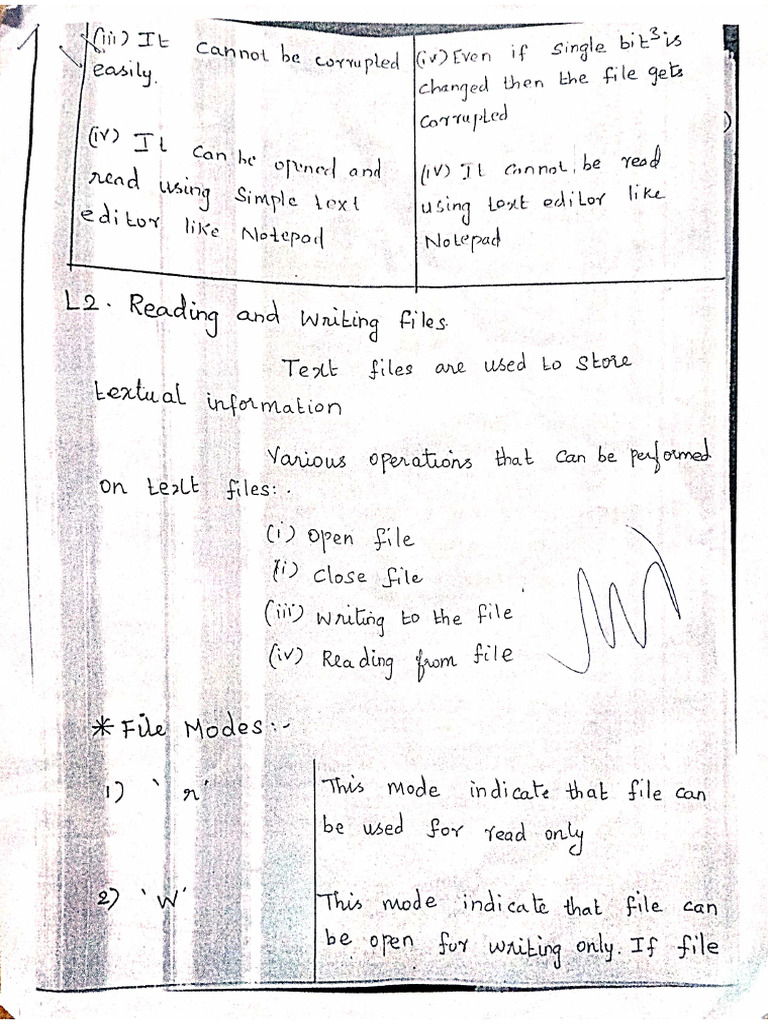 (iii) It cannot be corrupted
easily.
(iv) It can be opened and
read using Simple text
editor like Notepad
(iv) Even if single bit is
changed then the file gets
corrupted
(iv) It cannot be read
using text editor like
Notepad
L2. Reading and Writing files.
Text files are used to store
textual information
Various operations that can be performed
on text files:-
(i) Open file
(i) Close file
(iii) Writing to the file
(iv) Reading from file
* File Modes:-
1) 'r'
This mode indicate that file can
be used for read only
2) 'W'
This mode indicate that file can
be open for writing only. If file